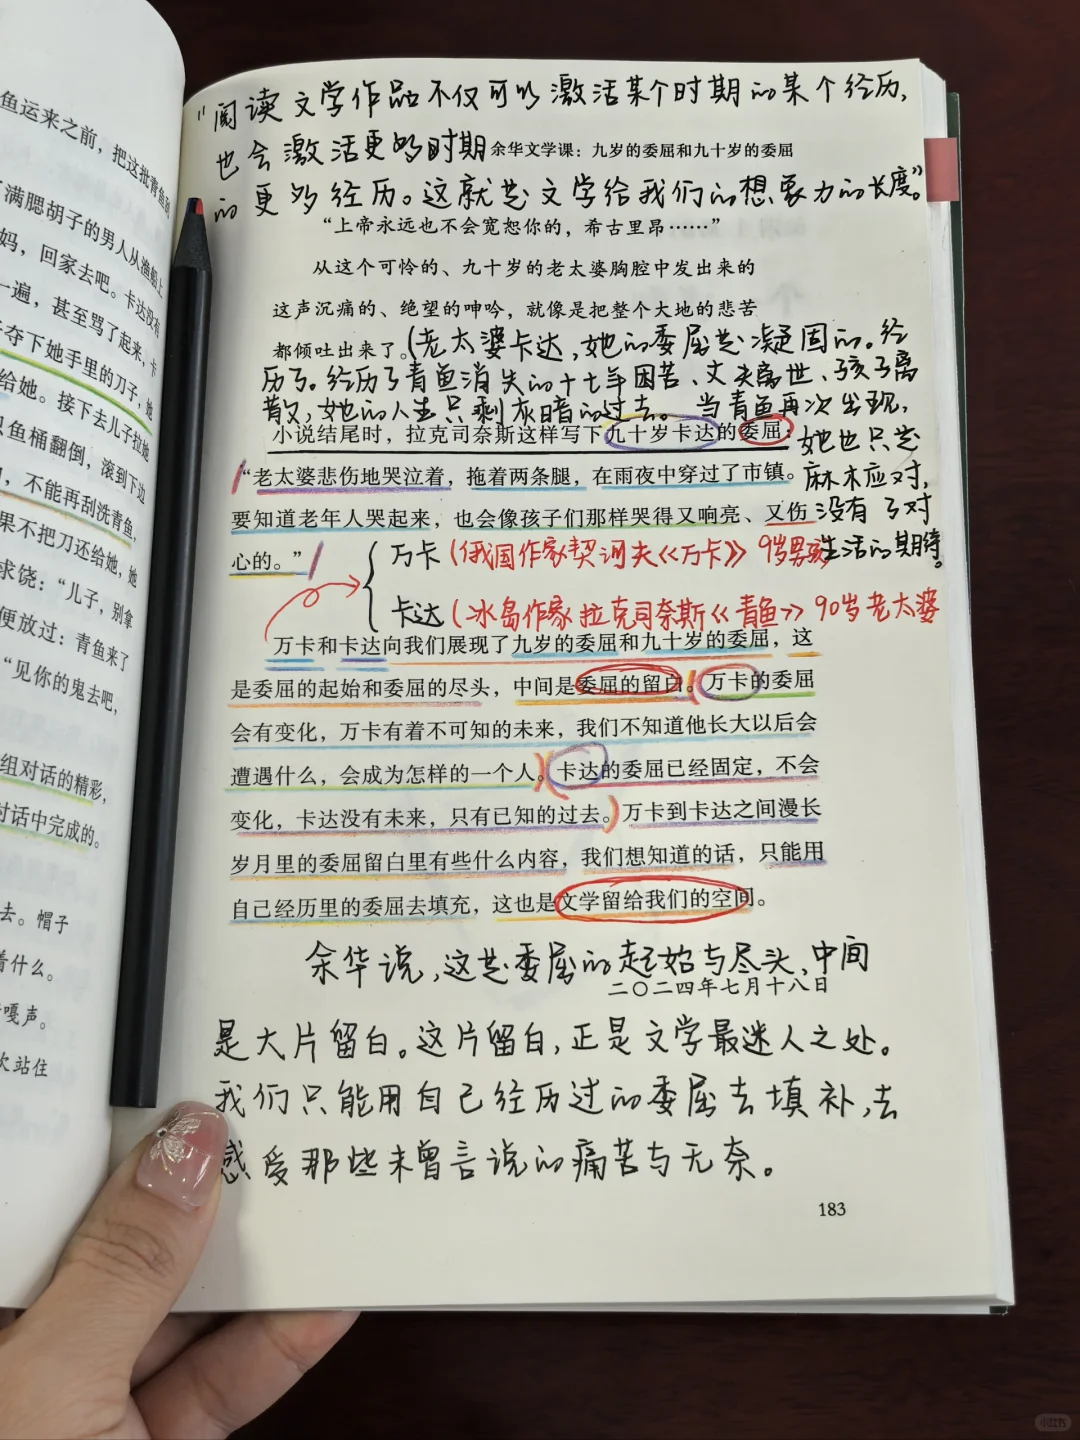 鱼运来之前，把这批青鱼刮
满腮胡子的男人从渔船上
妈，回家去吧。卡达没有
一遍，甚至骂了起来，卡
夺下她手里的刀子，她
给她。接下去儿子拉她
鱼桶翻倒，滚到下边
，不能再刮洗青鱼，
果不把刀还给她，她
求饶：“儿子，别拿
便放过：青鱼来了
“见你的鬼去吧，
组对话的精彩，
对话中完成的。
去。帽子
着什么。
嘎声。
次站住
“阅读文学作品不仅可以激活某个时期的某个经历，
也会激活更多时期
余华文学课：九岁的委屈和九十岁的委屈
的更多经历。这就是文学给我们的想象力的长度。”
“上帝永远也不会宽恕你的，希古里昂……”
从这个可怜的、九十岁的老太婆胸腔中发出来的
这声沉痛的、绝望的呻吟，就像是把整个大地的悲苦
都倾吐出来了。
(老太婆卡达，她的委屈是凝固的。经
历了。经历了青鱼消失的十七年困苦、丈夫离世、孩子离
散，她的人生只剩灰暗的过去。当青鱼再次出现，
小说结尾时，拉克司奈斯这样写下九十岁卡达的委屈：
她也只是
“老太婆悲伤地哭泣着，拖着两条腿，在雨夜中穿过了市镇。
麻木应对，
要知道老年人哭起来，也会像孩子们那样哭得又响亮、又伤
没有了对
心的。”
生活的期待。
万卡（俄国作家契诃夫《万卡》9岁男孩
卡达（冰岛作家拉克司奈斯《青鱼》90岁老太婆
万卡和卡达向我们展现了九岁的委屈和九十岁的委屈，这
是委屈的起始和委屈的尽头，中间是委屈的留白。万卡的委屈
会有变化，万卡有着不可知的未来，我们不知道他长大以后会
遭遇什么，会成为怎样的一个人。卡达的委屈已经固定，不会
变化，卡达没有未来，只有已知的过去。万卡到卡达之间漫长
岁月里的委屈留白里有些什么内容，我们想知道的话，只能用
自己经历里的委屈去填充，这也是文学留给我们的空间。
余华说，这是委屈的起始与尽头，中间
二〇二四年七月十八日
是大片留白。这片留白，正是文学最迷人之处。
我们只能用自己经历过的委屈去填补，去
感受那些未曾言说的痛苦与无奈。
183
小红书